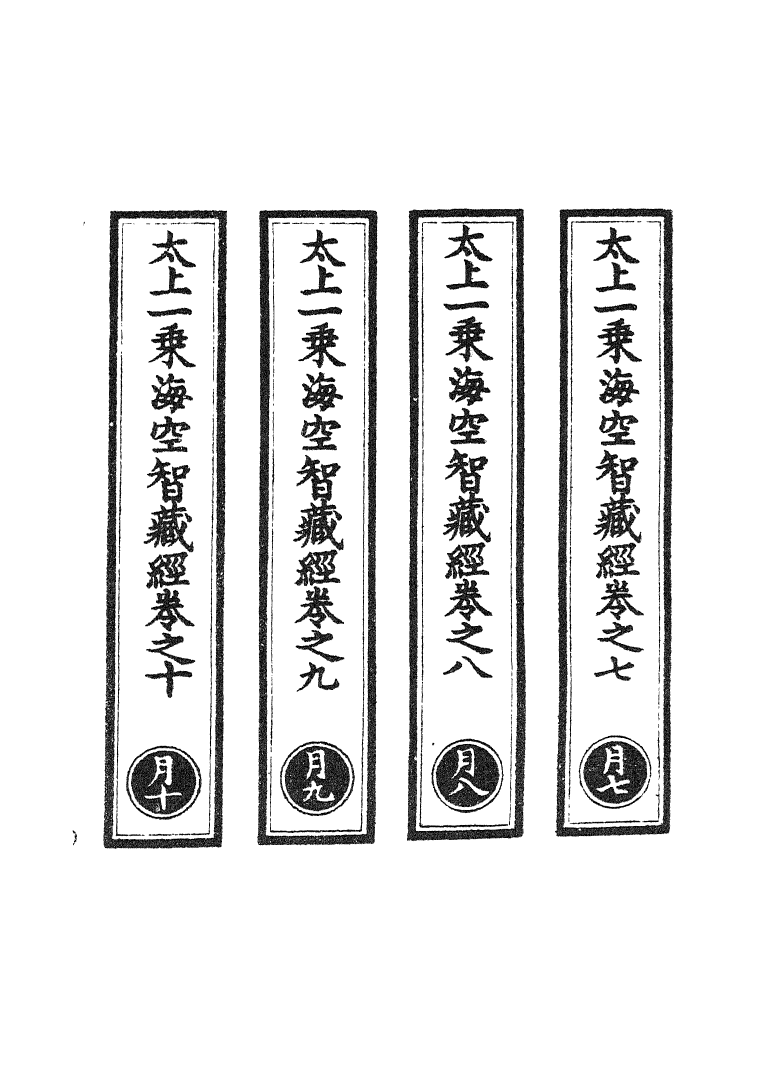 太上一乘海空智藏經卷之七
月七
太上一乘海空智藏經卷之八
月八
太上一乘海空智藏經卷之九
月九
太上一乘海空智藏經卷之十
月十